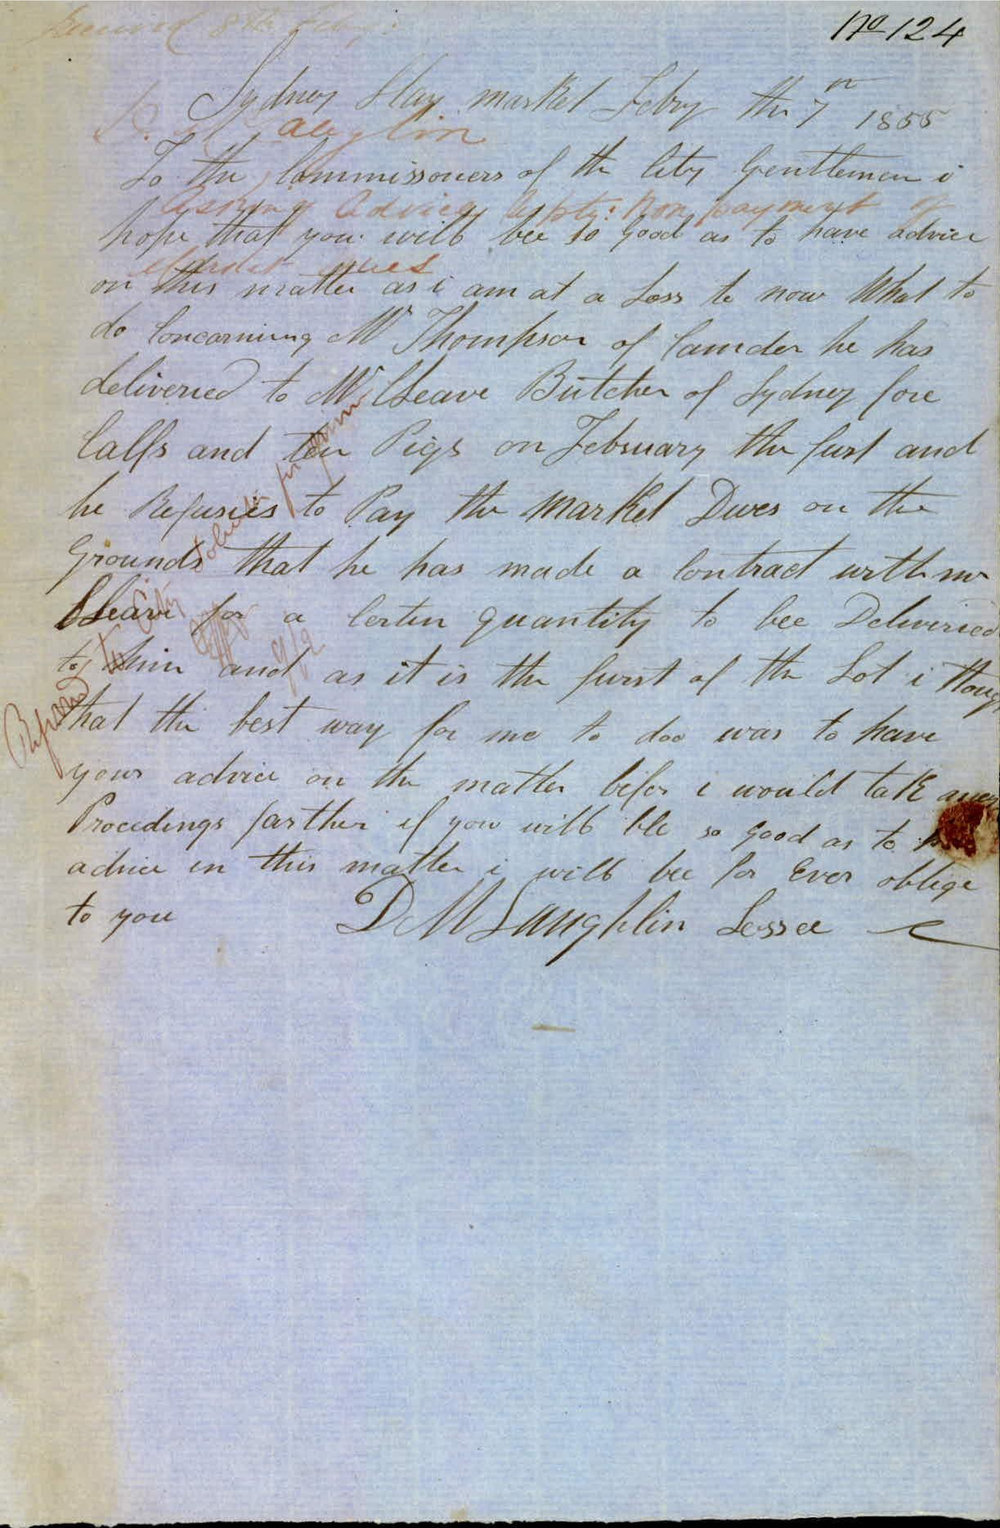 No 124
Received 8th Feby
Sydney Hay market Feby the 7th 1855
D. McLaughlin
To the Commissoners of the City Gentlemen i
Asking Advice respg: Non payment of
hope that you will bee so good as to have advice
Market dues
on this matter as i am at a Loss to now What to
do Concarning Mr Thompson of Camden he has
deliveried to Mr Cleave Butcher of Sydney fore
Calfs and ten Pigs on February the furst and
he Refusies to Pay the Market Dues on the
Grounds that he has made a Contract with mr
Cleave for a Certin quantity to bee Deliveried
to him and as it is the furst of the Lot i thoug
that the best way for me to doo was to have
your advice on the matter befor i would take
Procedings farther if you will bee so Good as to
advice in this matter i will bee for Ever oblige
to you D McLaughlin Lessee
Referred to City Solicitor for
9/2